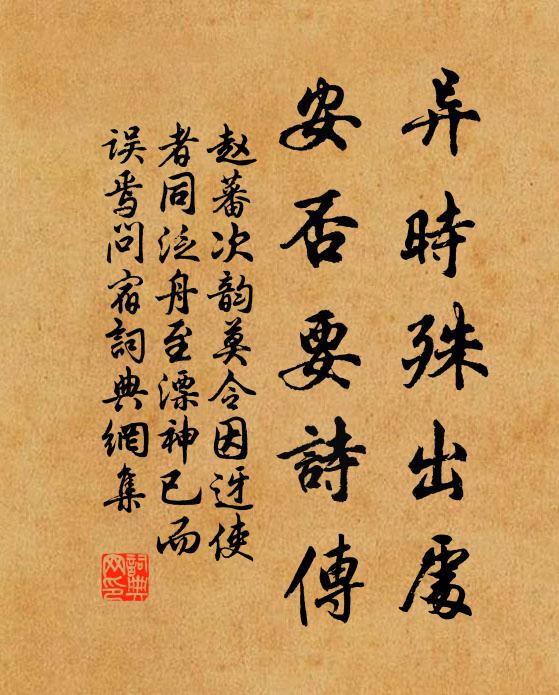 异時殊出處
安否要詩傳
赵蕃次韵莫令因迓使
者同泛舟至漂神已而
误焉问宿詞典網集
詞典
网印